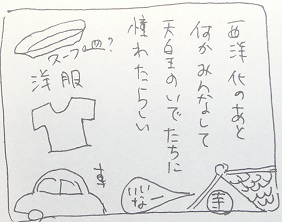 西洋化のあと
何かみんなして
天皇のいでたちに
憧れたらしい
スープ皿?
洋服
車
いいなー